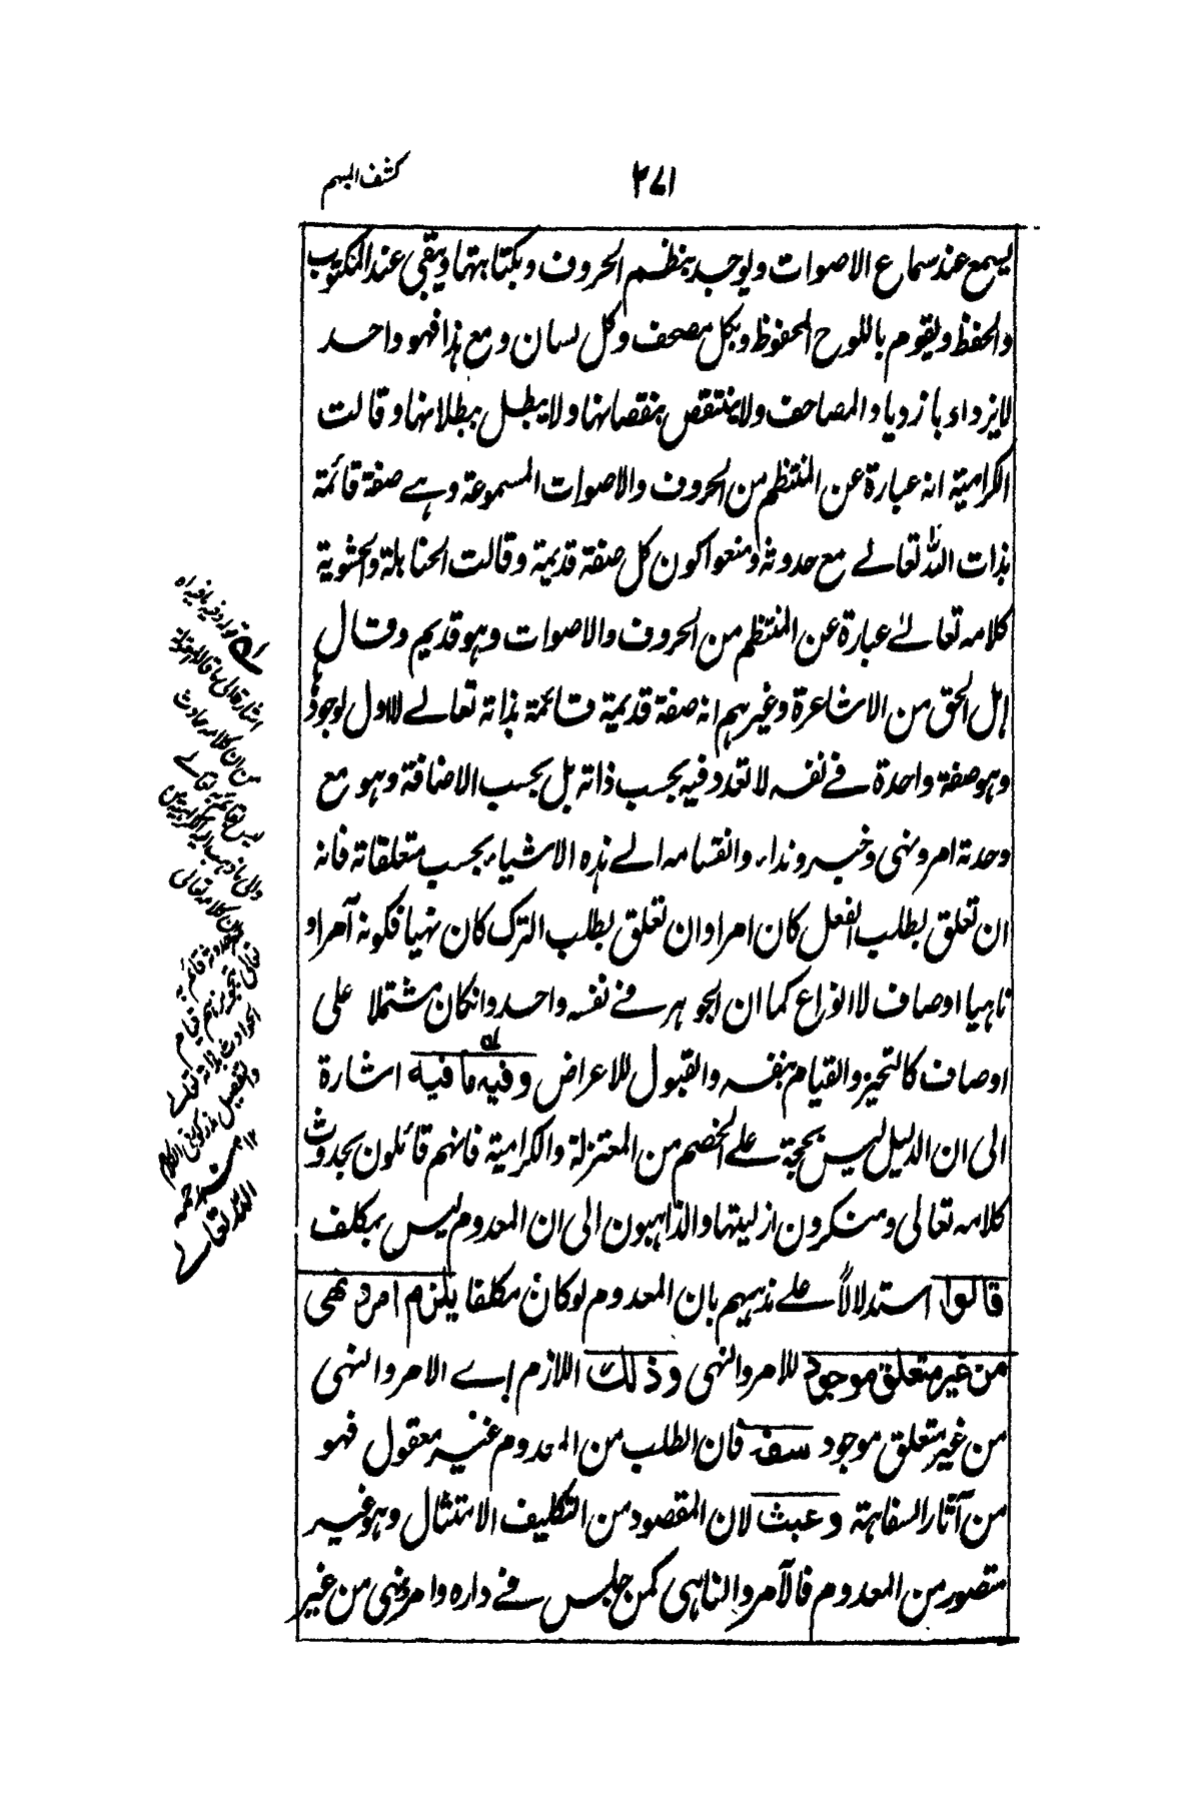 ٢٧١
كشف المبهم
يسمع عند سماع الاصوات ويوجد بنظم الحروف وبكتابتها ويبقى عند المكتوب
والحفظ ويقوم باللوح المحفوظ وبكل مصحف وكل لسان ومع هذا فهو واحد
لايزداد بازدياد المصاحف ولاينتقص بنقصانها ولايبطل ببطلانها وقالت
الكرامية انه عبارة عن المنتظم من الحروف والاصوات المسموعة وهے صفة قائمة
بذات اللّٰه تعالے مع حدوثه ومنعوا كون كل صفة قديمة وقالت الحنابلة والحشوية
كلامه تعالےٰ عبارة عن المنتظم من الحروف والاصوات وهو قديم وقال
اهل الحق من الاشاعرة وغيرهم انه صفة قديمة قائمة بذاته تعالے للاول لوجوه
وهو صفة واحدة فے نفسه لا تعدد فيه بحسب ذاته بل بحسب الاضافة وهو مع
وحدته امر ونهى وخبر ونداء وانقسامه الے هذه الاشياء بحسب متعلقاته فانه
ان تعلق بطلب الفعل كان امرا وان تعلق بطلب الترك كان نهيا فكونه آمرا و
ناهيا اوصاف لا انواع كما ان الجوهر فے نفسه واحد وانكان مشتملا على
اوصاف كالتحيز والقيام بنفسه والقبول للاعراض وفيه ما فيه اشارة
الى ان الدليل ليس بحجة علے الخصم من المعتزلة والكرامية فانهم قائلون بحدوث
كلامه تعالى ومنكرون ازليتها والذاهبون الى ان المعدوم ليس بمكلف
قالوا استدلالاً علے مذهبهم بان المعدوم لو كان مكلفا يلزم امر ونهى
من غير متعلق موجود للامر والنهى وذلك اللازم اے الامر والنهى
من غير متعلق موجود سفه فان الطلب من المعدوم غير معقول فهو
من آثار السفاهة وعبث لان المقصود من التكليف الامتثال وهو غير
متصور من المعدوم فالآمر والناهى كمن جلس فے داره وامر ونهى من غير
له قوله وفيه ما فيه اه
اشار الى ما قاله المعتزلة
من ان كلامه حادث
ليس بقائم به تعالے
والى ما ذهب اليه الكرامية من
ان كلامه تعالى
الحوادث بذاته تعالے
والتفصيل مذكور فى الكلام
١٢ منه رحمه
اللّٰه تعالے